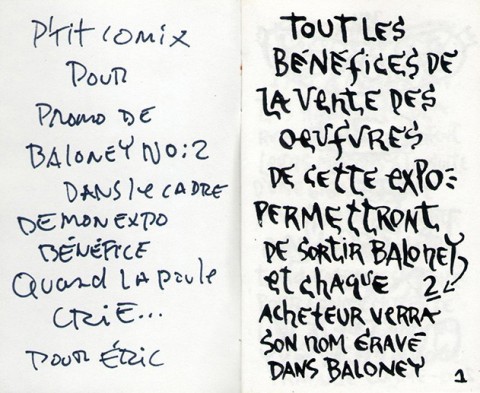 P'tit comix
Pour
Promo de
BALONEY NO:2
DANS le CADRE
DE MON EXPO
BÉNÉFICE
Quand LA poule
CRIE...
Pour ÉRIC
TOUT LES
BÉNÉFICES DE
LA VENTE DES
OEUFVRES
DE CETTE EXPO
PERMETTRONT
DE SORTIR BALONEY
et chaque 2
ACHETEUR VERRA
SON NOM GRAVÉ
DANS BALONEY 1